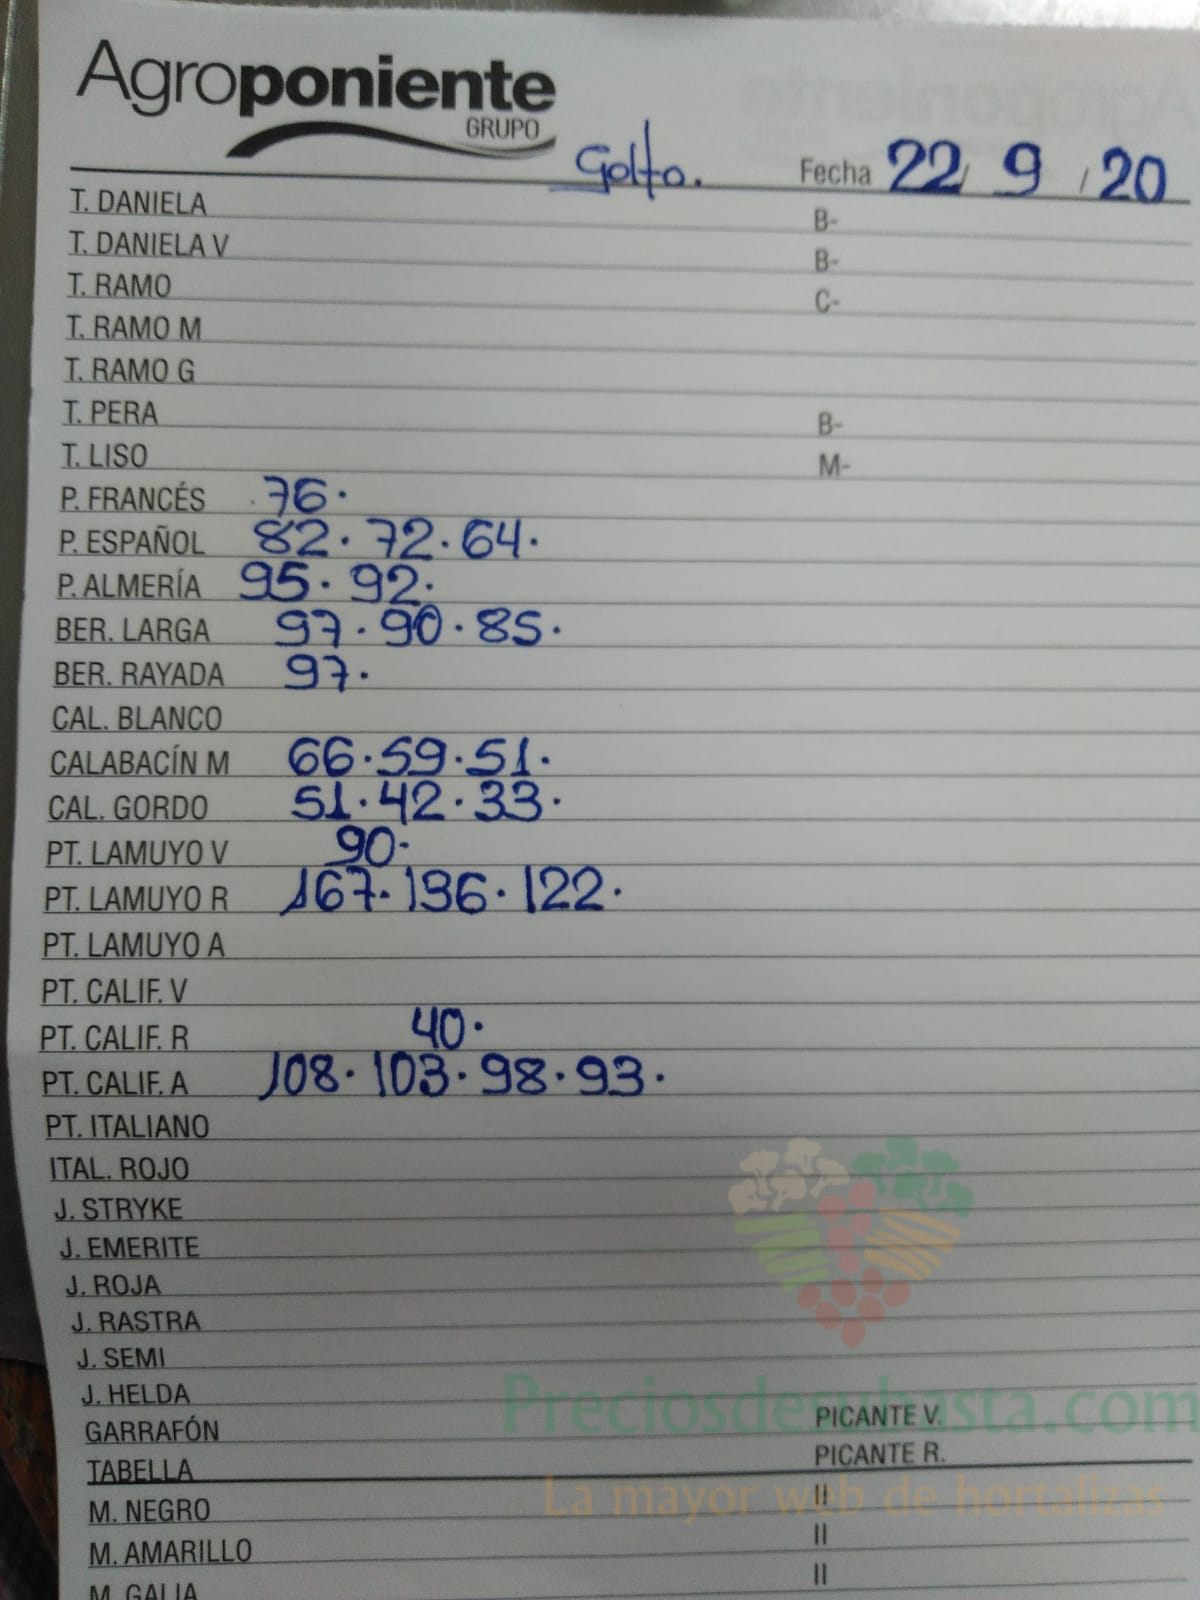 Agroponiente
GRUPO
Golfo. Fecha 22/ 9 / 20
T. DANIELA B-
T. DANIELA V B-
T. RAMO C-
T. RAMO M
T. RAMO G
T. PERA B-
T. LISO M-
P. FRANCÉS 76.
P. ESPAÑOL 82. 72. 64.
P. ALMERÍA 95. 92.
BER. LARGA 97. 90. 85.
BER. RAYADA 97.
CAL. BLANCO
CALABACÍN M 66. 59. 51.
CAL. GORDO 51. 42. 33.
PT. LAMUYO V 90.
PT. LAMUYO R 167. 136. 122.
PT. LAMUYO A
PT. CALIF. V
PT. CALIF. R 40.
PT. CALIF. A 108. 103. 98. 93.
PT. ITALIANO
ITAL. ROJO
J. STRYKE
J. EMERITE
J. ROJA
J. RASTRA
J. SEMI
J. HELDA
Preciosdesubasta.com
GARRAFÓN PICANTE V.
TABELLA PICANTE R.
La mayor web de hortalizas
M. NEGRO II
M. AMARILLO II
M. GALIA II